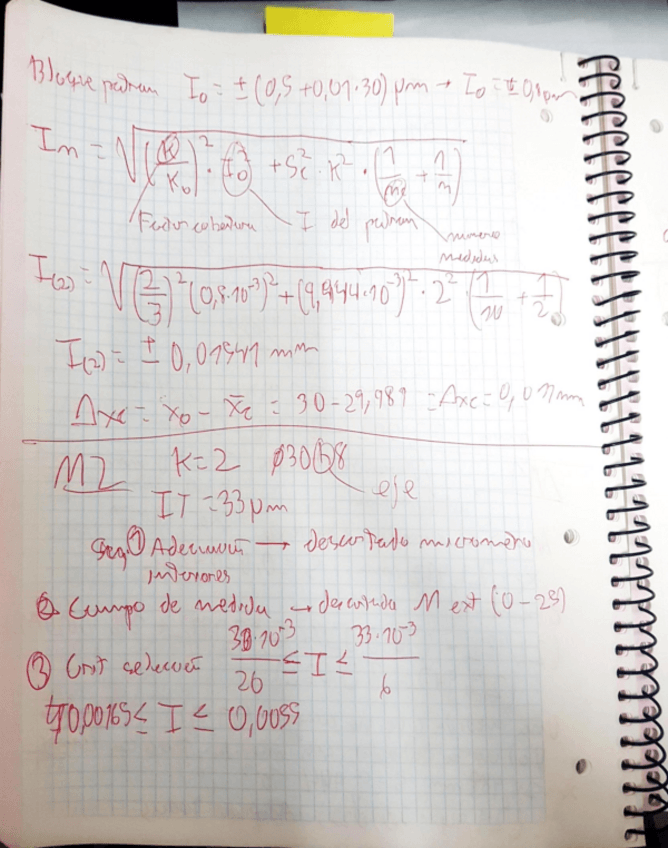 Bloque patrón I₀ = ±(0,5 + 0,01·30) μm → I₀ = ±0,8 μm
Im = √((K/K₀)² · I₀² + Sc² · K² · (1/mc + 1/m))
Factor cobertura I del patrón número
medidas
I(2) = √((2/3)² (0,8·10⁻³)² + (9,944·10⁻³)² · 2² · (1/10 + 1/2))
I(2) = ± 0,01541 mm
Δxc = x₀ - x̄c = 30 - 29,989 = Δxc = 0,011 mm
M2 K=2 ø30h8
eje
IT = 33 μm
① Adecuación → descartado micrómetro
interiores
② Campo de medida → descartado M ext (0-25)
③ Crit selección 33·10⁻³/20 ≤ I ≤ 33·10⁻³/6
0,00165 ≤ I ≤ 0,0055